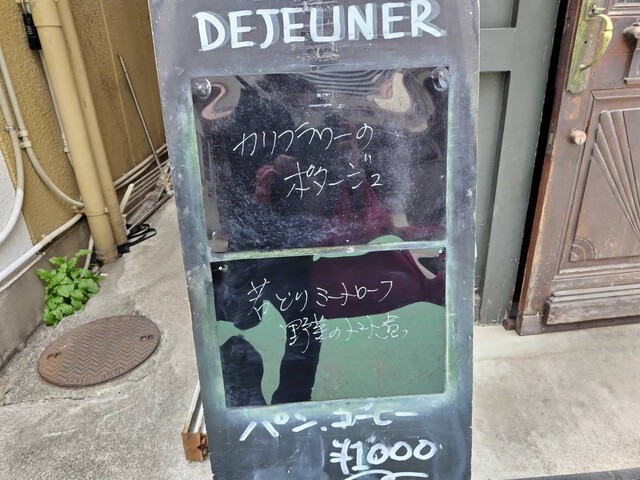 DEJEUNER
カリフラワーの
ポタージュ
若どりミートローフ
野菜のトマト煮
パン.コーヒー
¥1000